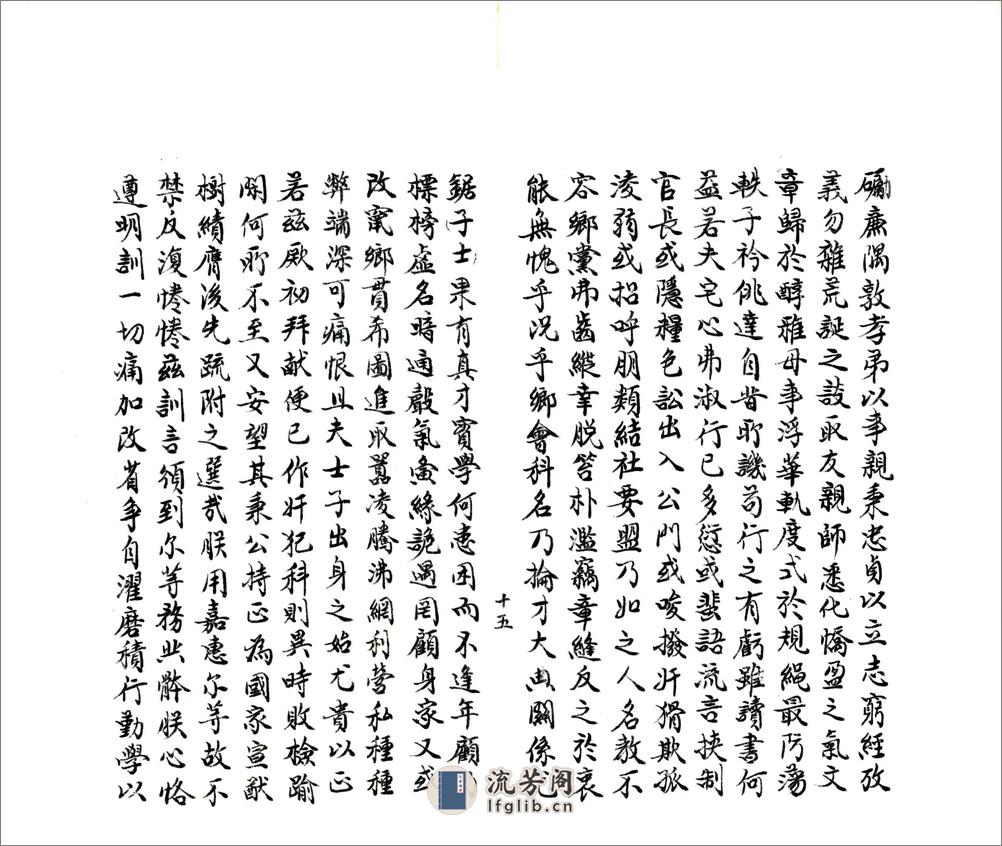 礪廉隅敦孝弟以事親秉忠貞以立志窮經攷
義勿雜荒誕之談取友親師悉化憍盈之氣文
章歸於醇雅毋事浮華軌度式於規繩最防蕩
軼子衿佻達自昔所譏苟行之有虧雖讀書何
益若夫宅心弗淑行已多愆或蜚語流言挾制
官長或隱糧包訟出入公門或唆撥奸猾欺孤
淩弱或招呼朋類結社要盟乃如之人名教不
容鄉黨弗齒縱幸脫笞朴濫竊章縫反之於衷
能無愧乎況乎鄉會科名乃掄才大典關係
十五
鋸子士果有真才實學何患困而不逢年顧
標榜虛名暗通聲氣夤緣詭遇罔顧身家又或
改竄鄉貫希圖進取囂凌騰沸網利營私種種
弊端深可痛恨且夫士子出身之始尤貴以正
若茲厥初拜献便已作奸犯科則異時敗檢踰
閑何所不至又安望其秉公持正為國家宣猷
樹績膺後先疏附之選哉朕用嘉惠尔等故不
禁反復惓惓茲訓言頒到尔等務共體朕心恪
遵明訓一切痛加改省爭自濯磨積行勤學以
流芳阁
lfglib.cn